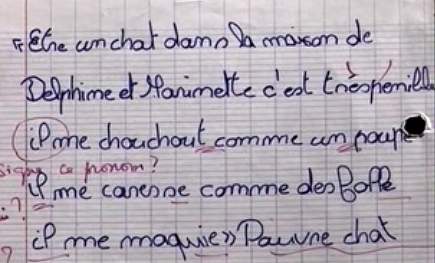 « Être un chat dans la maison de
Delphime et Marimette c'est trèspenill
il me chouchout comme um poupé
signe ce pronom?
il me caresse comme des folle
?
il me maquie » Pauvre chat
?